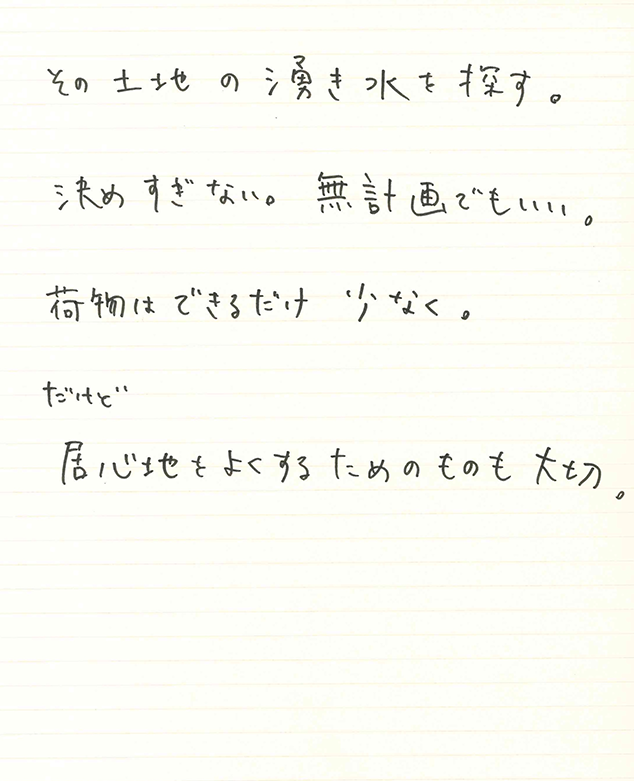 その土地の湧き水を探す。
決めすぎない。無計画でもいい。
荷物はできるだけ少なく。
だけど
居心地をよくするためのものも大切。